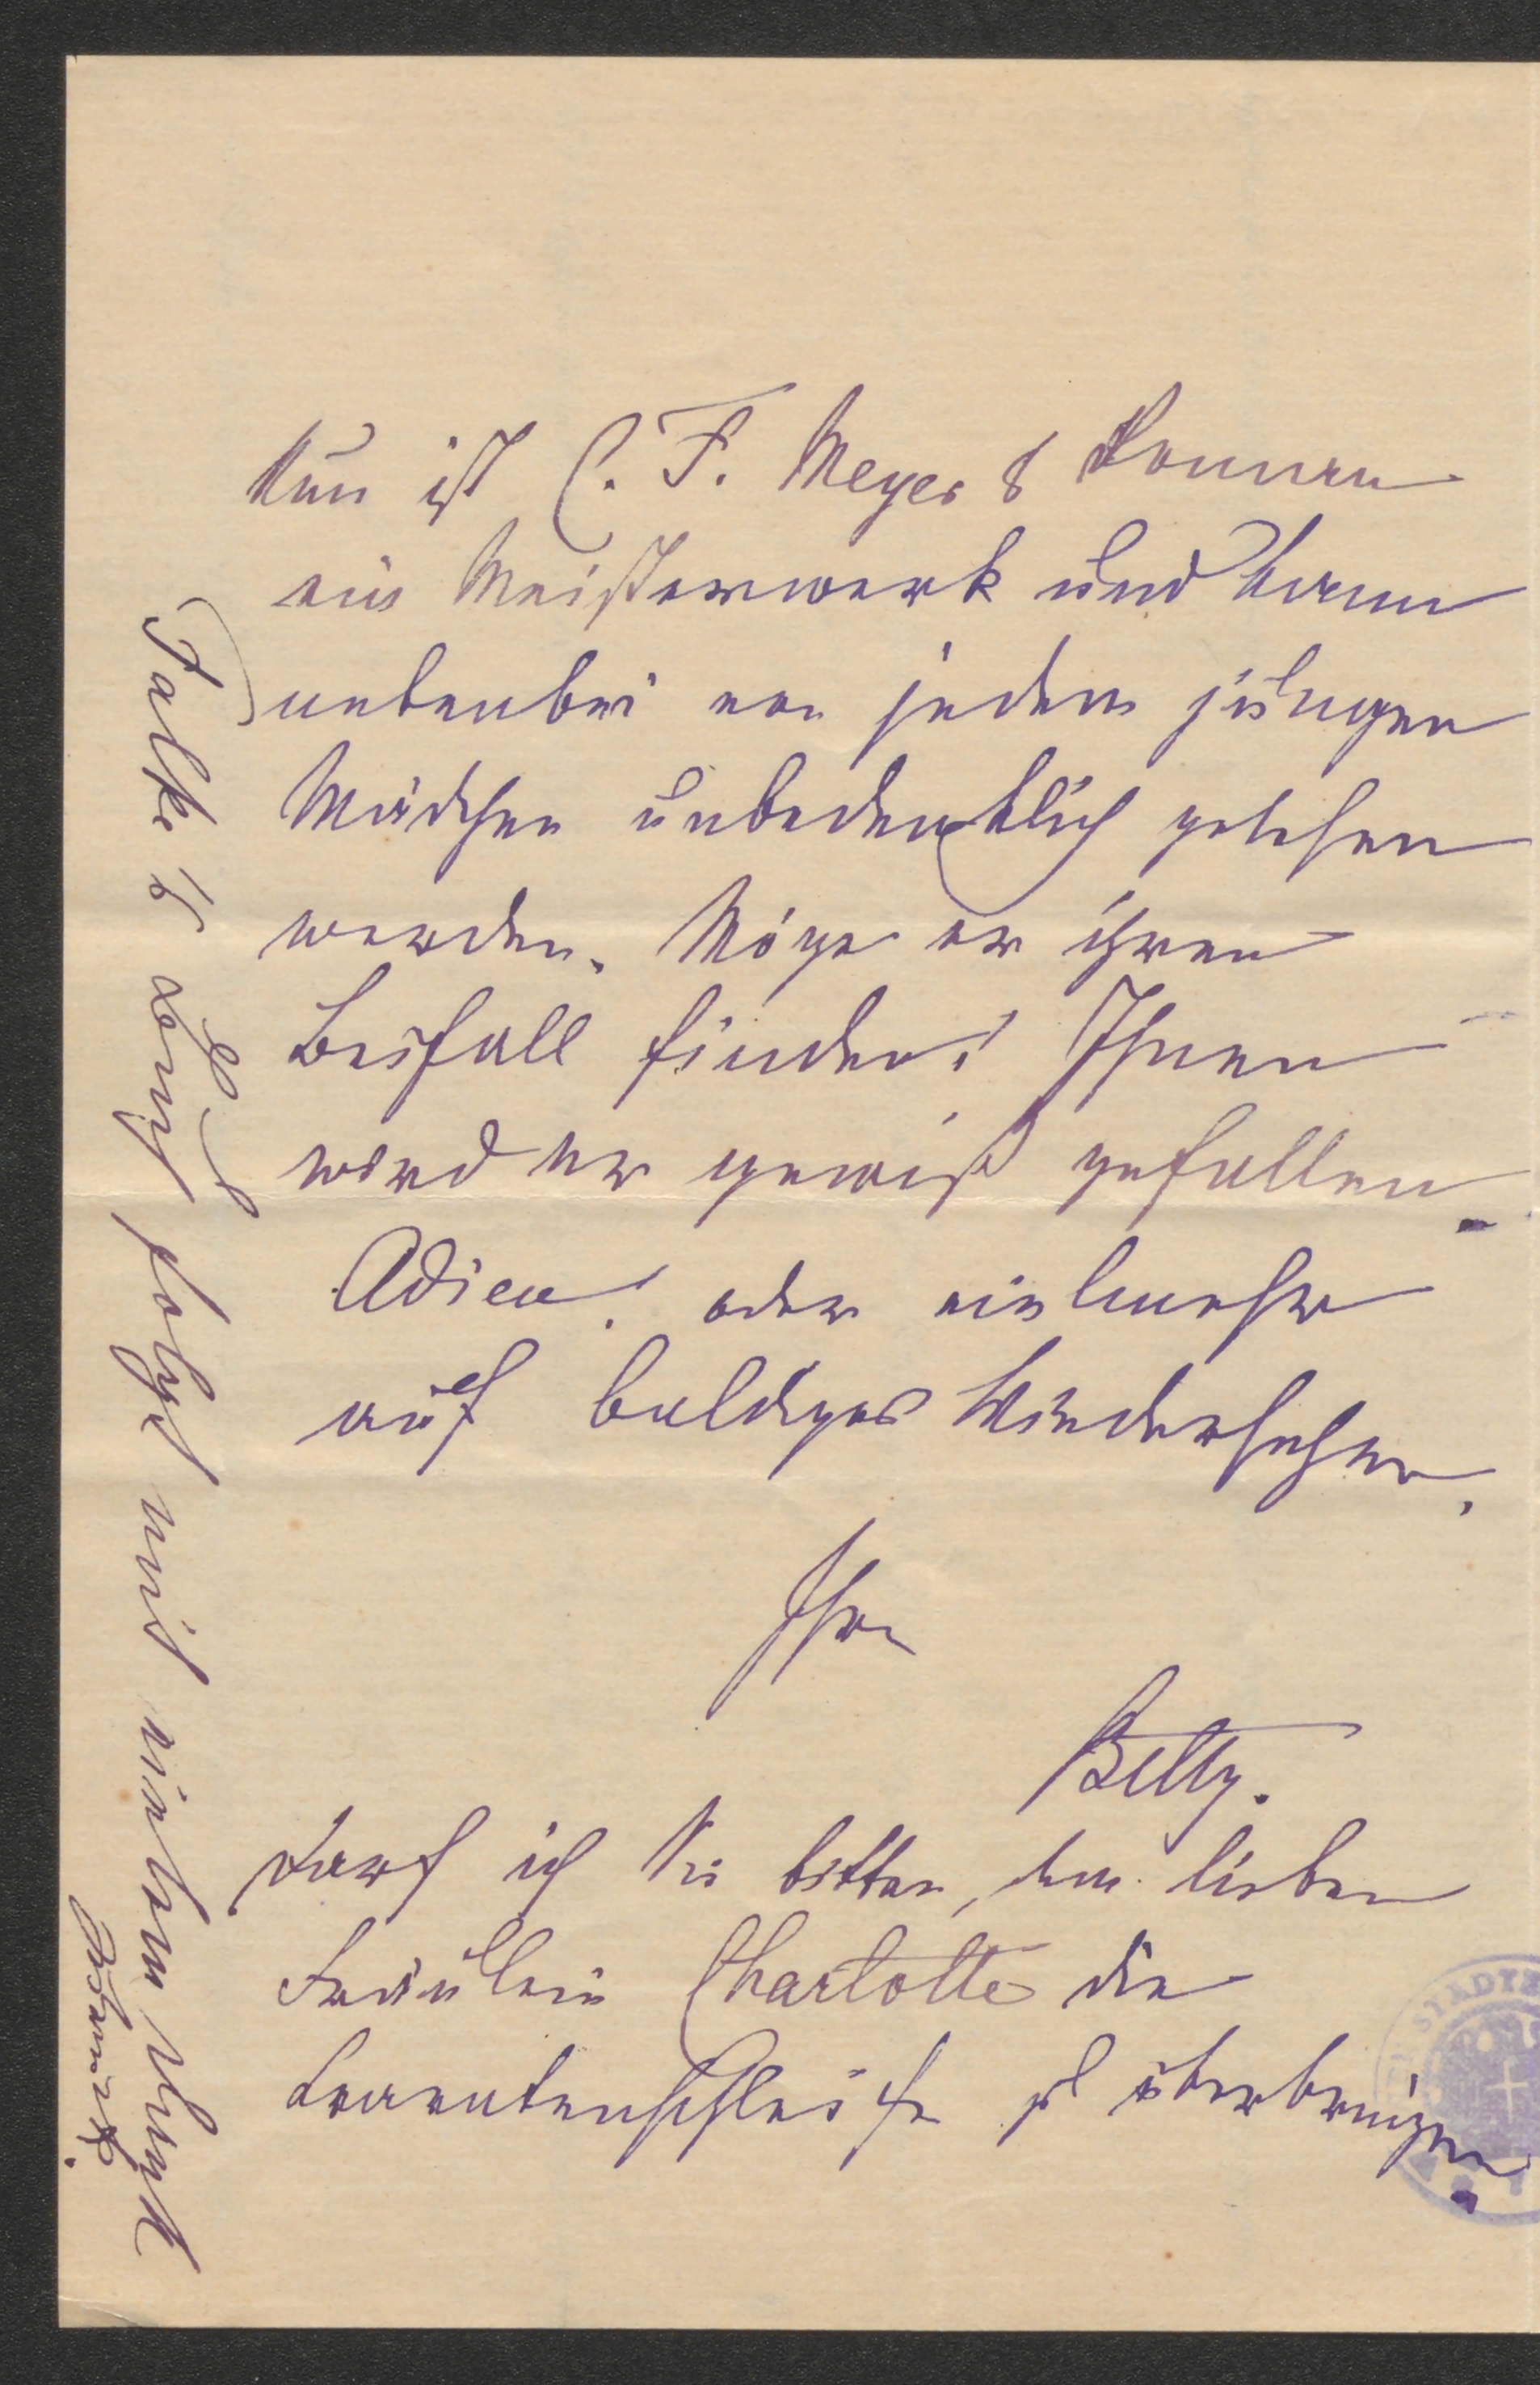 Nun ist C. F. Meyers Roman
ein Meisterwerk und kann
nebenbei von jedem jungen
Mädchen unbedenklich gelesen
werden. Möge er ihren
Beifall finden! Ihnen
wird er gewiß gefallen.
Adieu! oder vielmehr
auf baldiges Wiedersehen.
Ihre
Betty.
Darf ich Sie bitten, dem lieben
Fräulein Charlotte die
zu überbringen
Falke's folgt mit vielem Dank
zurück.